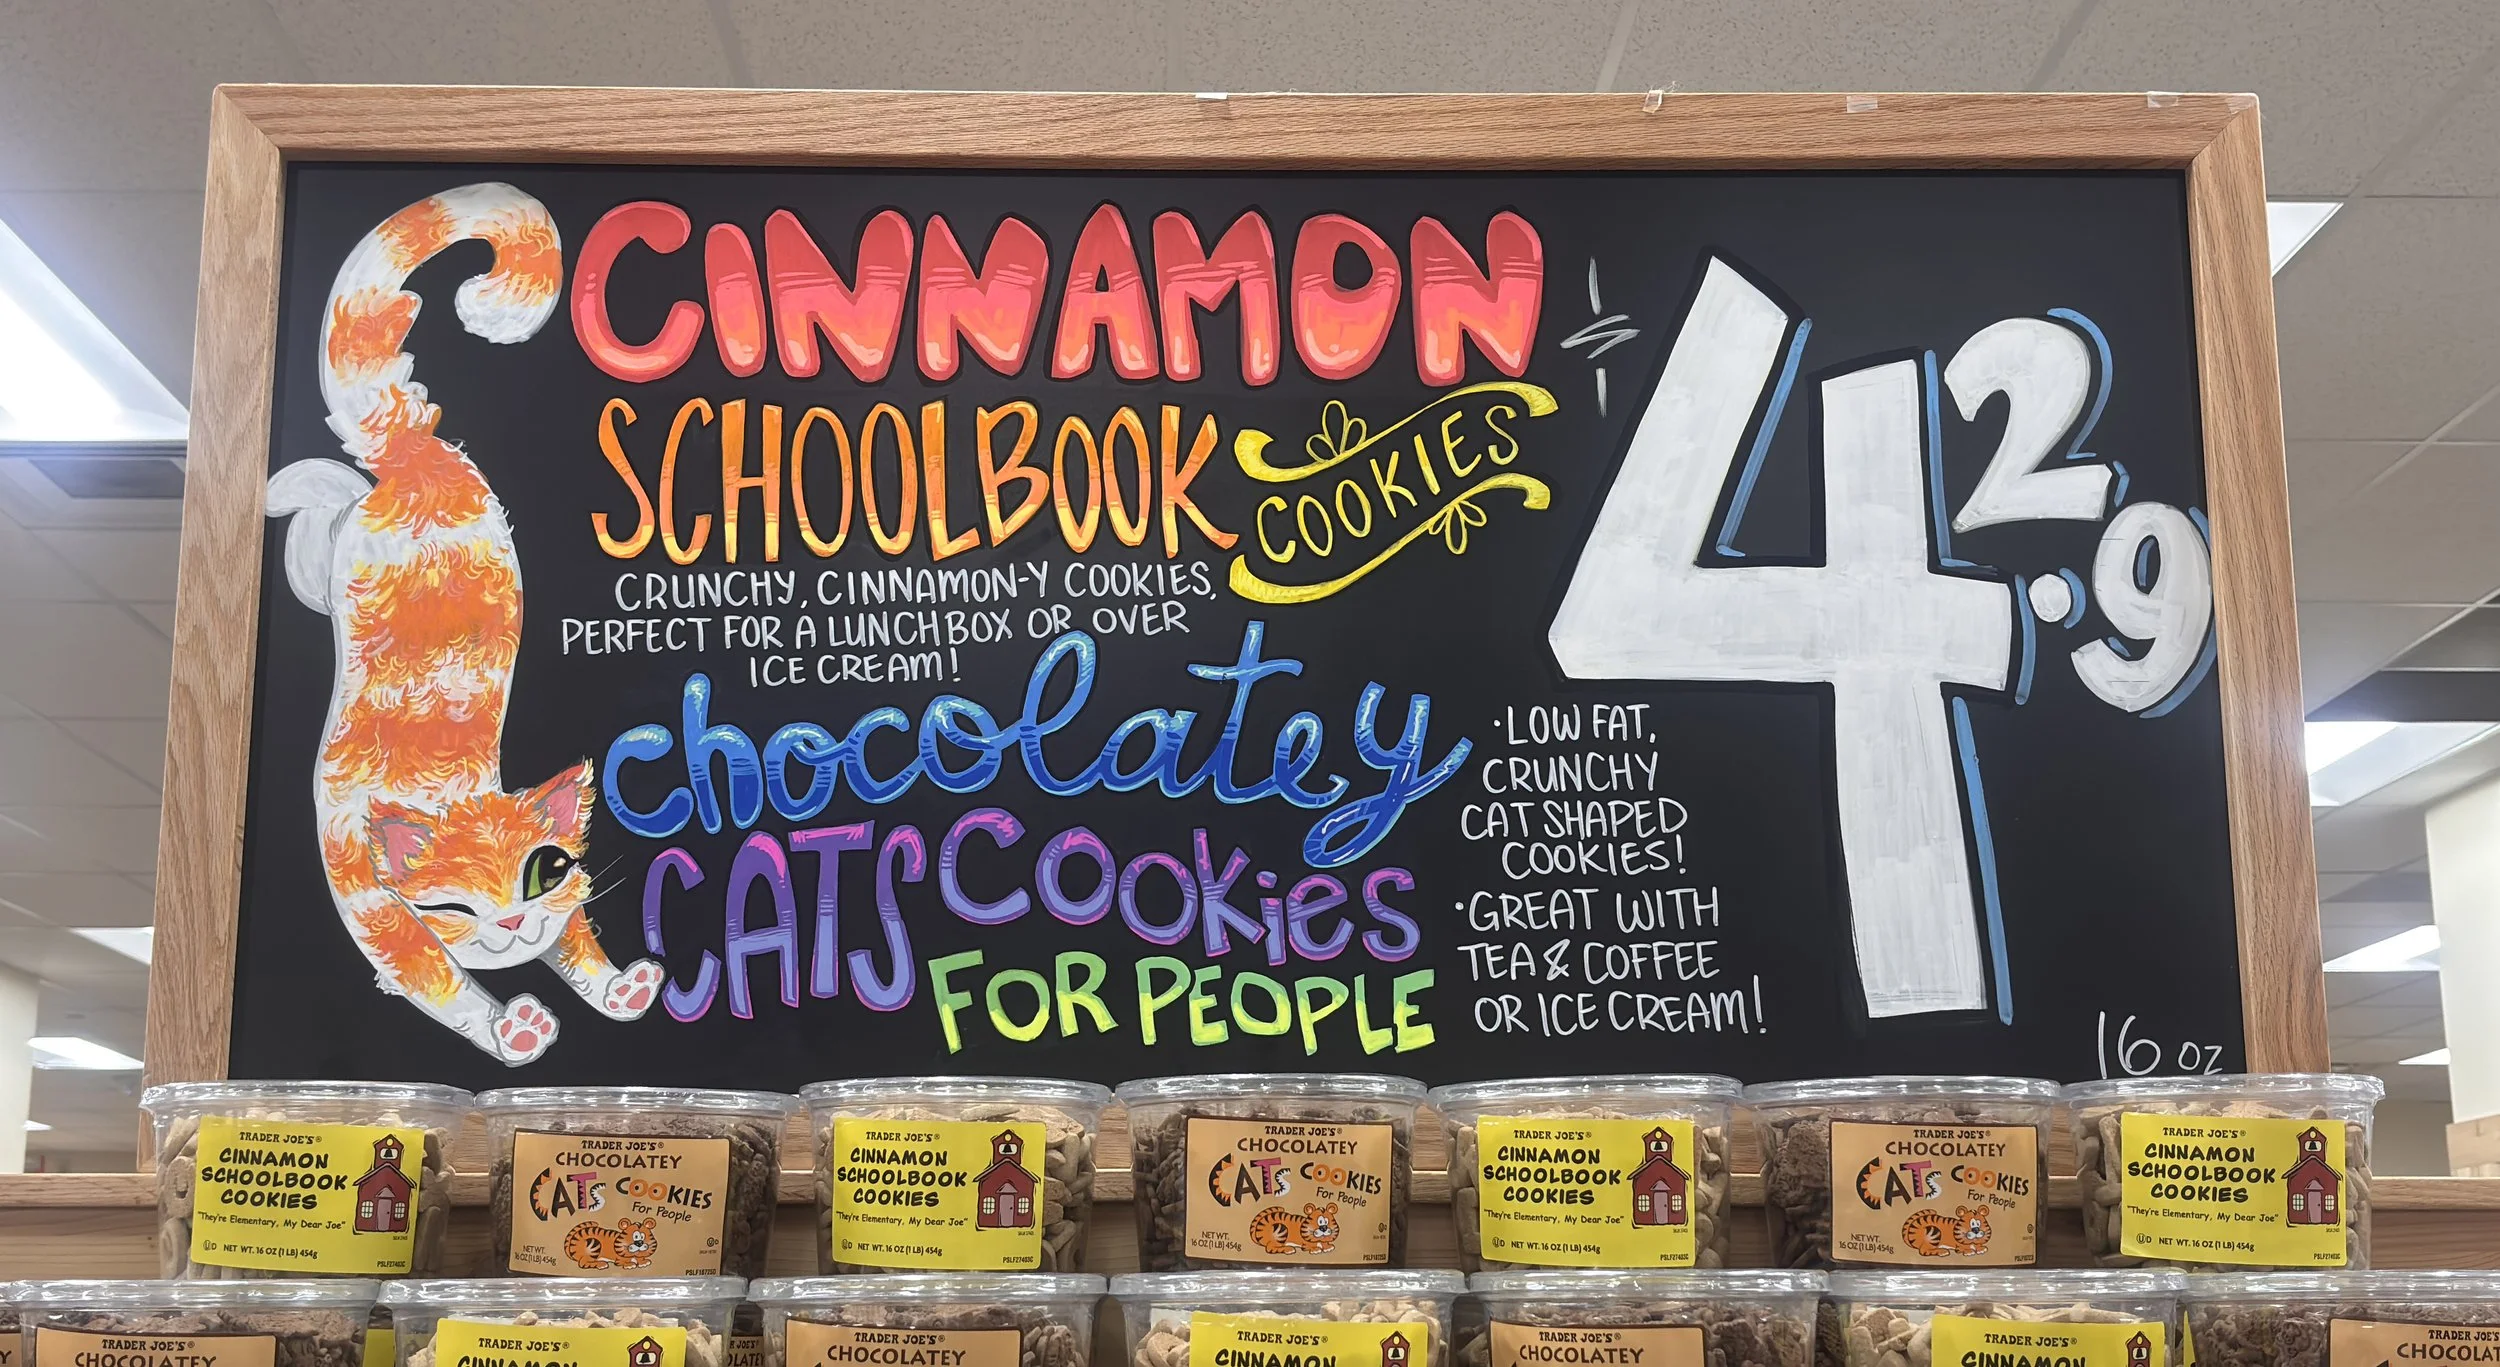 CINNAMON
SCHOOLBOOK
COOKIES
CRUNCHY, CINNAMON-Y COOKIES,
PERFECT FOR A LUNCHBOX OR OVER
ICE CREAM!
chocolatey
CATS COOkies
FOR PEOPLE
$4 2.9
•LOW FAT,
CRUNCHY
CAT SHAPED
COOKIES!
•GREAT WITH
TEA & COFFEE
OR ICE CREAM!
16 OZ
TRADER JOE'S®
CINNAMON
SCHOOLBOOK
COOKIES
"They're Elementary, My Dear Joe"
NET WT. 16 OZ (1 LB) 454g
TRADER JOE'S
CHOCOLATEY
CATS COOKIES
For People
NET WT.
16 OZ (1 LB) 454g
TRADER JOE'S®
CINNAMON
SCHOOLBOOK
COOKIES
"They're Elementary, My Dear Joe"
NET WT. 16 OZ (1 LB) 454g
TRADER JOE'S
CHOCOLATEY
CATS COOKIES
For People
NET WT.
16 OZ (1 LB) 454g
TRADER JOE'S®
CINNAMON
SCHOOLBOOK
COOKIES
"They're Elementary, My Dear Joe"
NET WT. 16 OZ (1 LB) 454g
TRADER JOE'S
CHOCOLATEY
CATS COOKIES
For People
NET WT.
16 OZ (1 LB) 454g
TRADER JOE'S®
CINNAMON
SCHOOLBOOK
COOKIES
"They're Elementary, My Dear Joe"
NET WT. 16 OZ (1 LB) 454g
TRADER JOE'S
CHOCOLATEY
TRADER JOE'S®
CINNAMON
TRADER JOE'S
CHOCOLATEY
TRADER JOE'S®
CINNAMON
TRADER JOE'S
CHOCOLATEY
TRADER JOE'S®
CINNAMON
TRADER JOE'S
CHOCOLAT